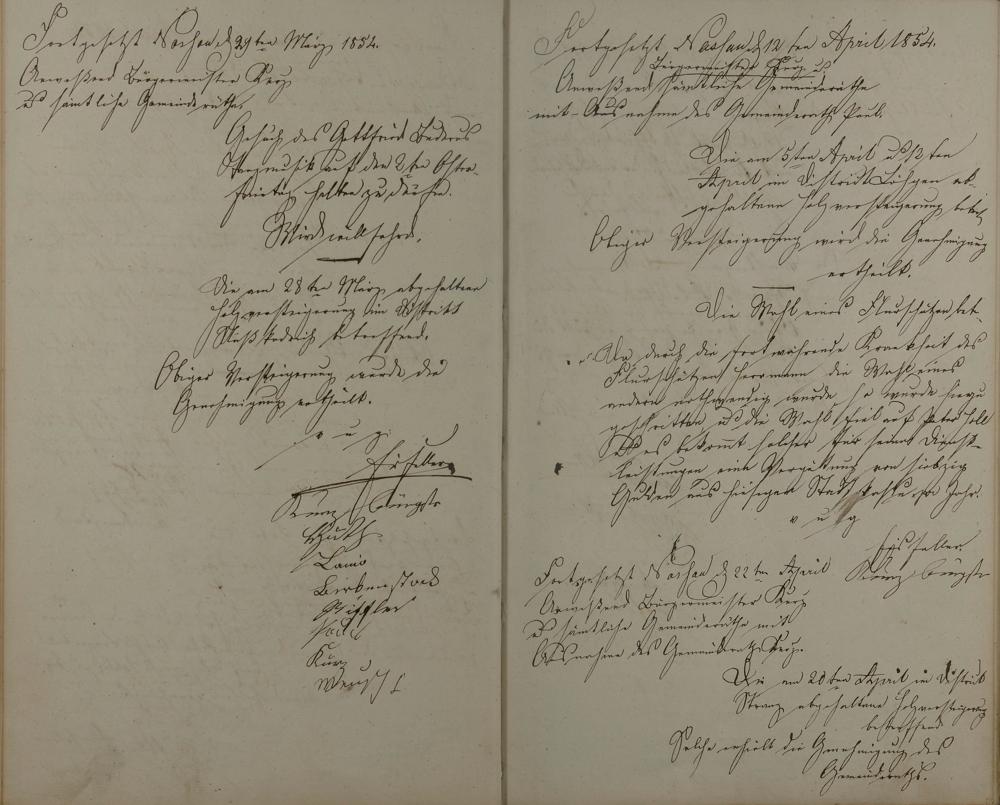 Fortgesetzt Nassau d 29ten März 1854.
Anwesend Bürgermeister Kurz
u sämtliche Gemeinderäthe.
Gesuch des Gottfried
Tanzmusik auf den 2ten Oster-
feiertag halten zu dürfen.
Wird willfahrt.
Die am 28ten März abgehaltene
Holzversteigerung im Distrikt
betreffend.
Obiger Versteigerung wurde die
Genehmigung ertheilt.
v u g
Eisfeller
Kunz Bürgstr
Buth
Birkenstock
Kurz
Fortgesetzt, Nassau d 12ten April 1854.
Bürgermeister Kurz u
Anwesend sämtliche Gemeinderäthe
mit Ausnahme des Gemeinderaths Paul.
Die am 5ten April u 12ten
April im Distrikt ab-
gehaltene Holzversteigerung betr.
Obiger Versteigerung wird die Genehmigung
ertheilt.
Die Wahl eines Flurschützen bet.
Da durch die fortwährende Krankheit des
Flurschützen Herrmann die Wahl eines
andern nothwendig wurde, so wurde hiezu
geschritten, u die Wahl fiel auf Peter
u es bekommt solcher für seine Dienst-
leistungen eine Vergütung von siebzig
Gulden aus hiesiger Stadtkasse pro Jahr.
v u g
Eisfeller
Kunz Bürgstr
Fortgesetzt Nassau d 22ten April
Anwesend Bürgermeister Kurz
u sämtliche Gemeinderäthe mit
Ausnahme des Gemeinderaths Kurz.
Die am 20ten April im Distrikt
abgehaltene Holzversteigerung
betreffend
Solche erhielt die Genehmigung des
Gemeinderaths.